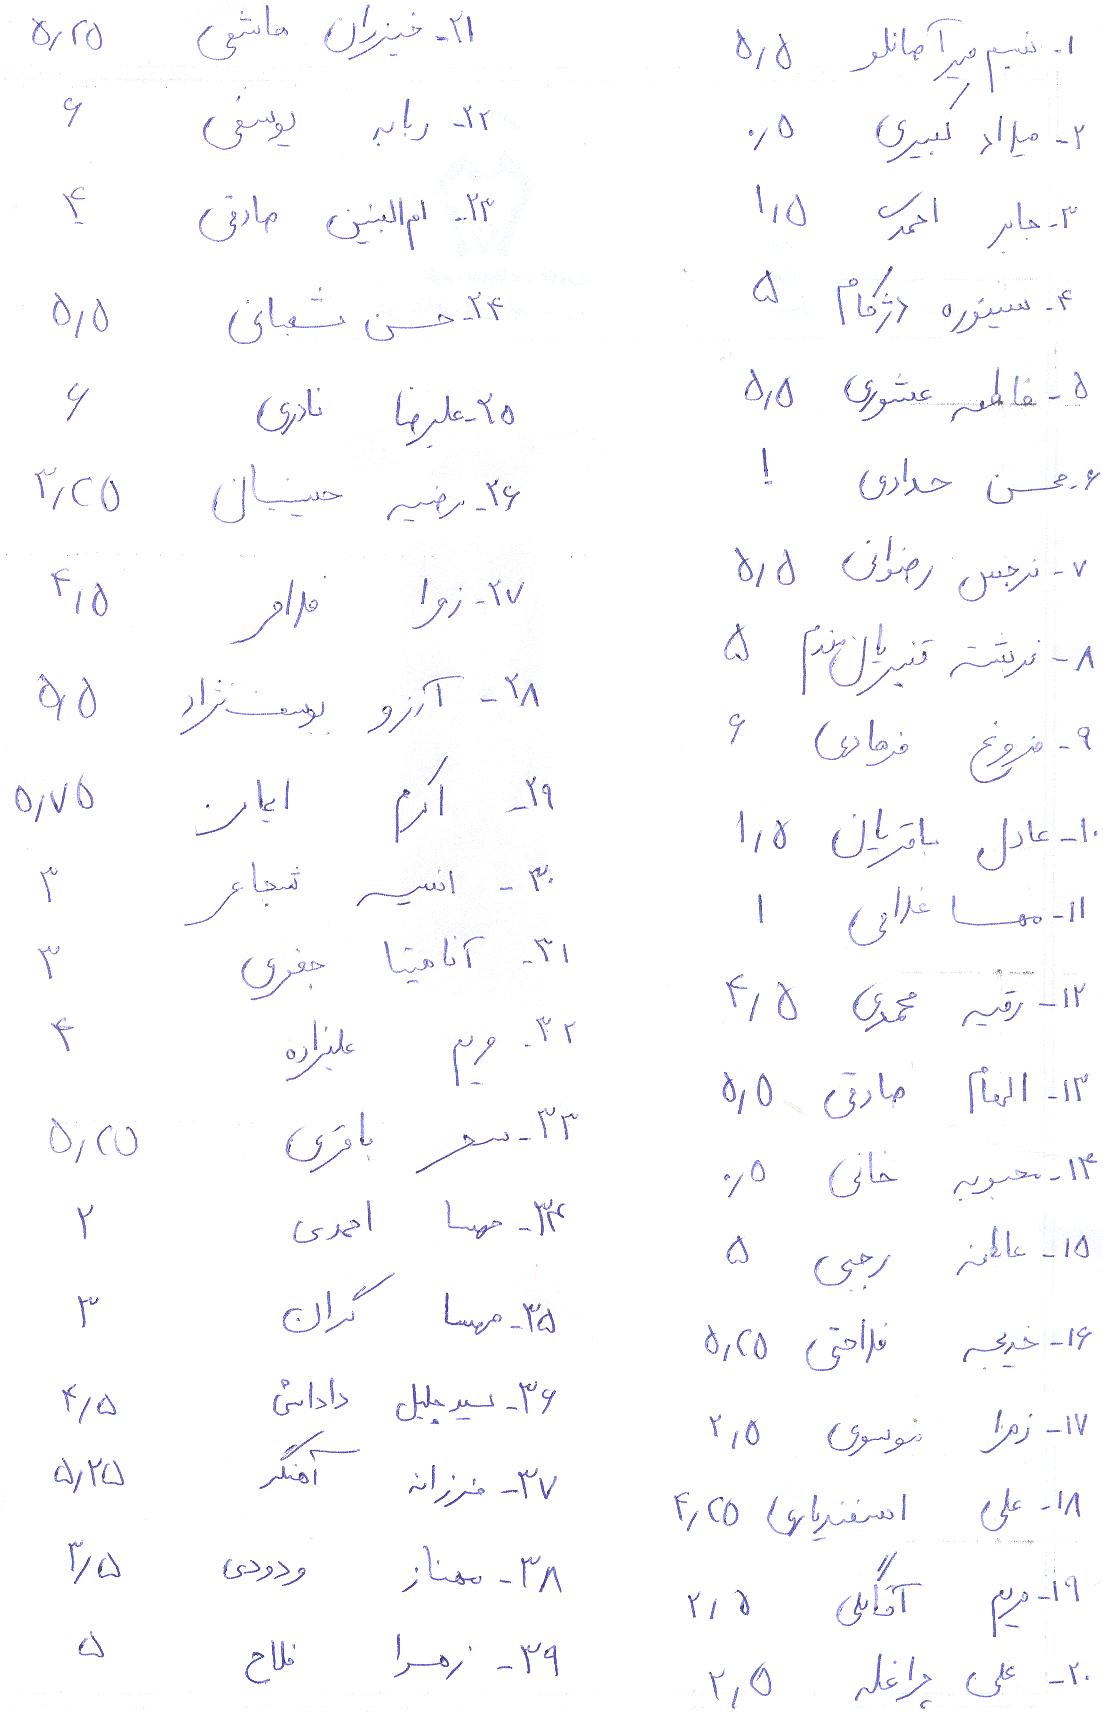 ۱- نسیم میرآصانلو ۵٫۵
۲- میلاد کبیری ۰٫۵
۳- جابر احمدی ۱٫۵
۴- ستوره دژکام ۵
۵- فاطمه عشوری ۵٫۵
۶- محسن حدادی ۱
۷- نرجس رضوانی ۵٫۵
۸- فرشته قنبریان مقدم ۵
۹- فروغ فرهادی ۶
۱۰- عادل باقریان ۱٫۵
۱۱- مهسا غلامی ۱
۱۲- رقیه محمدی ۴٫۵
۱۳- الهام صادقی ۵٫۵
۱۴- محبوبه خانی ۰٫۵
۱۵- عاطفه رجبی ۵
۱۶- خدیجه فلاحتی ۵٫۲۵
۱۷- زهرا موسوی ۲٫۵
۱۸- علی اسفندیاری ۴٫۲۵
۱۹- مریم آقاگلی ۲٫۵
۲۰- علی چراغله ۲٫۵
۲۱- خیزران هاشمی ۵٫۲۵
۲۲- ربابه یوسفی ۶
۲۳- ام‌البنین صادقی ۴
۲۴- حسن شعبانی ۵٫۵
۲۵- علیرضا نادری ۶
۲۶- مرضیه حسینیان ۳٫۲۵
۲۷- زهرا ۴٫۵
۲۸- آرزو یوسف‌نژاد ۵٫۵
۲۹- اکرم ۵٫۷۵
۳۰- انسیه شجاعی ۳
۳۱- آناهیتا جعفری ۳
۳۲- مریم علیزاده ۴
۳۳- سحر باقری ۵٫۲۵
۳۴- مهسا احمدی ۲
۳۵- مهسا گران ۳
۳۶- سید جلیل داداشی ۴٫۵
۳۷- فرزانه آهنگر ۵٫۲۵
۳۸- مهناز ودودی ۳٫۵
۳۹- زهرا فلاح ۵